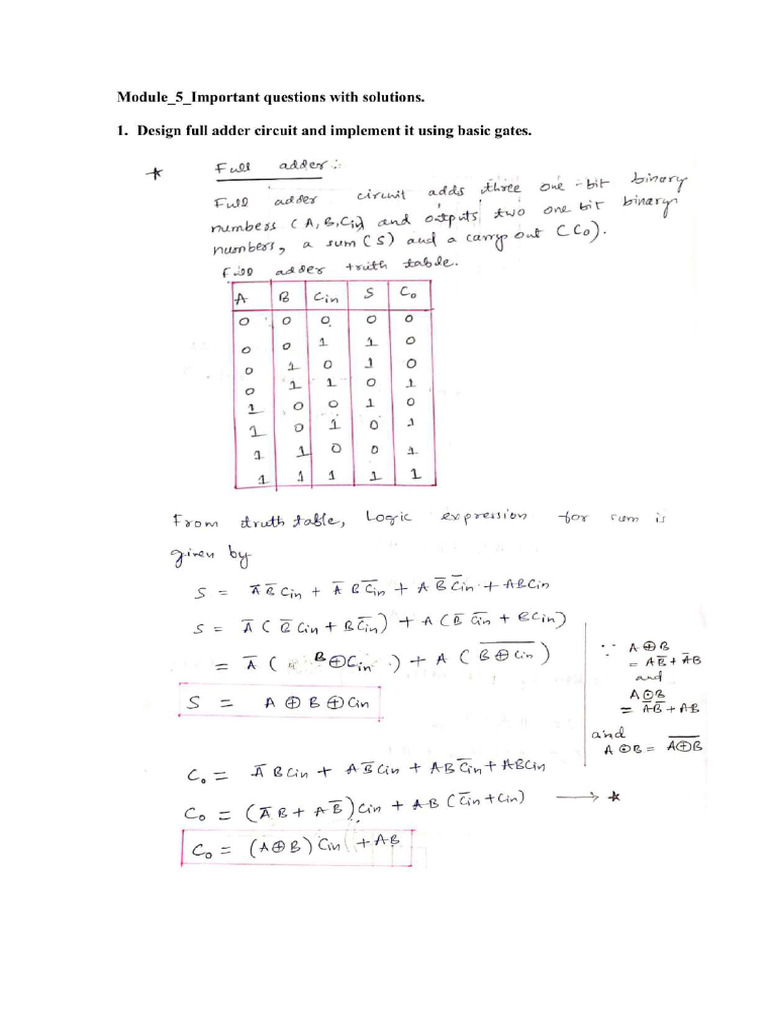 Module_5_Important questions with solutions.
1. Design full adder circuit and implement it using basic gates.
* Full adder :
Full adder circuit adds three one-bit binary
numbers (A,B,Cin) and outputs two one bit binary
numbers, a sum(S) and a carry out (Co).
Full adder truth table.
A B Cin S Co
0 0 0 0 0
0 0 1 1 0
0 1 0 1 0
0 1 1 0 1
1 0 0 1 0
1 0 1 0 1
1 1 0 0 1
1 1 1 1 1
From truth table, Logic expression for sum is
given by
S = A̅ B̅ Cin + A̅ B C̅i̅n̅ + A B̅ C̅i̅n̅ + ABCin
S = A̅ ( B̅ Cin + B C̅i̅n̅ ) + A ( B̅ C̅i̅n̅ + BCin)
= A̅ ( B⊕Cin ) + A ( B̅ ⊕̅ C̅i̅n̅ )
S = A ⊕ B ⊕ Cin
∵ A⊕B
= AB̅ + A̅B
and
A⊙B
= A̅B̅ + AB
and
A⊙B = A̅⊕̅B̅
Co = A̅ BCin + AB̅Cin + ABC̅i̅n̅ + ABCin
Co = (A̅B + AB̅) Cin + AB (C̅i̅n̅ + Cin) ⟶ *
Co = (A⊕B) Cin + AB